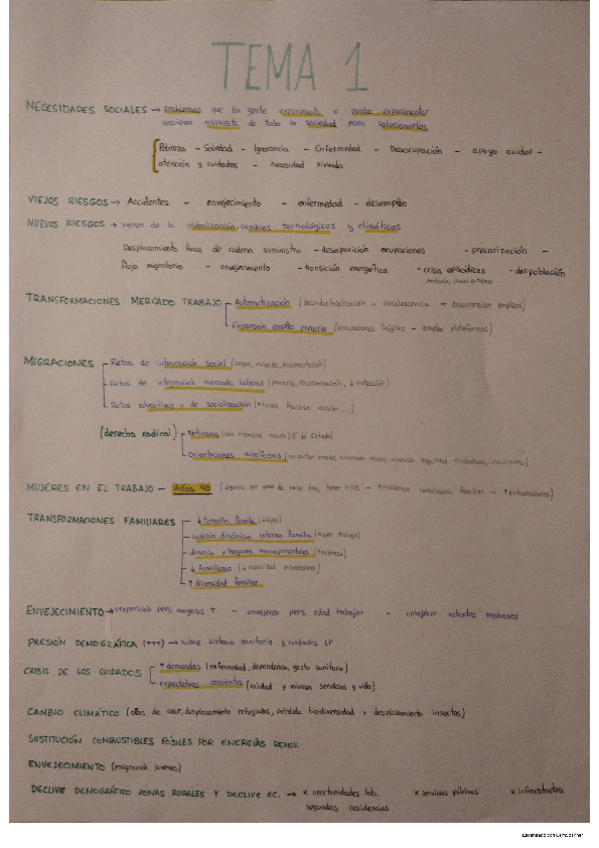 TEMA 1
NECESIDADES SOCIALES → problemas que la gente experimenta o puede experimentar
requieren respuesta de toda la sociedad para solucionarlos
Pobreza - Soledad - Ignorancia - Enfermedad - Desocupación - apoyo cuidar -
atención y cuidados - necesidad vivienda
VIEJOS RIESGOS → Accidentes - envejecimiento - enfermedad - desempleo
NUEVOS RIESGOS → vienen de la globalización, cambios tecnológicos y climáticos
Desplazamiento líneas de cadena suministro - desaparición ocupaciones - precarización -
flujo migratorio - envejecimiento - transición energética - crisis episódicas - despoblación
TRANSFORMACIONES MERCADO TRABAJO
Automatización (desindustrialización - robotización - desaparecen empleos)
Expansión empleo precario (vinculaciones frágiles - empleo plataformas)
MIGRACIONES
- Retos de integración social (lengua, vivienda, documentación)
- Retos de integración mercado laboral (precaria, discriminación, ↓ protección)
- Retos educativos y de socialización (↑ tasas fracaso escolar...)
(derecha radical)
Nativismo
Orientaciones xenófobas
MUJERES EN EL TRABAJO - Años 90
TRANSFORMACIONES FAMILIARES
↓ tamaño familia (↓ hijos)
cambio dinámica interna familia (mujer trabaja)
divorcio y hogares monoparentales (↑ pobreza)
↓ familismo (↓ capacidad promocional)
↑ diversidad familiar
ENVEJECIMIENTO → proporción pers. mayores ↑ - envejecen pers. edad trabajar - envejecer votantes medianos
PRESIÓN DEMOGRÁFICA (+++) → sobre sistema sanitario y cuidados LP
CRISIS DE LOS CUIDADOS
↑ demandas (enfermedad, dependencia, gasto sanitario)
expectativas crecientes (calidad y volumen servicios y vida)
CAMBIO CLIMÁTICO (olas de calor, desplazamiento refugiados, pérdida biodiversidad y desplazamiento insectos)
SUSTITUCIÓN COMBUSTIBLES FÓSILES POR ENERGÍAS RENOV.
ENVEJECIMIENTO (emigración jóvenes)
DECLIVE DEMOGRÁFICO ZONAS RURALES Y DECLIVE EC. → x oportunidades lab. x servicios públicos x infraestructura
segundas residencias